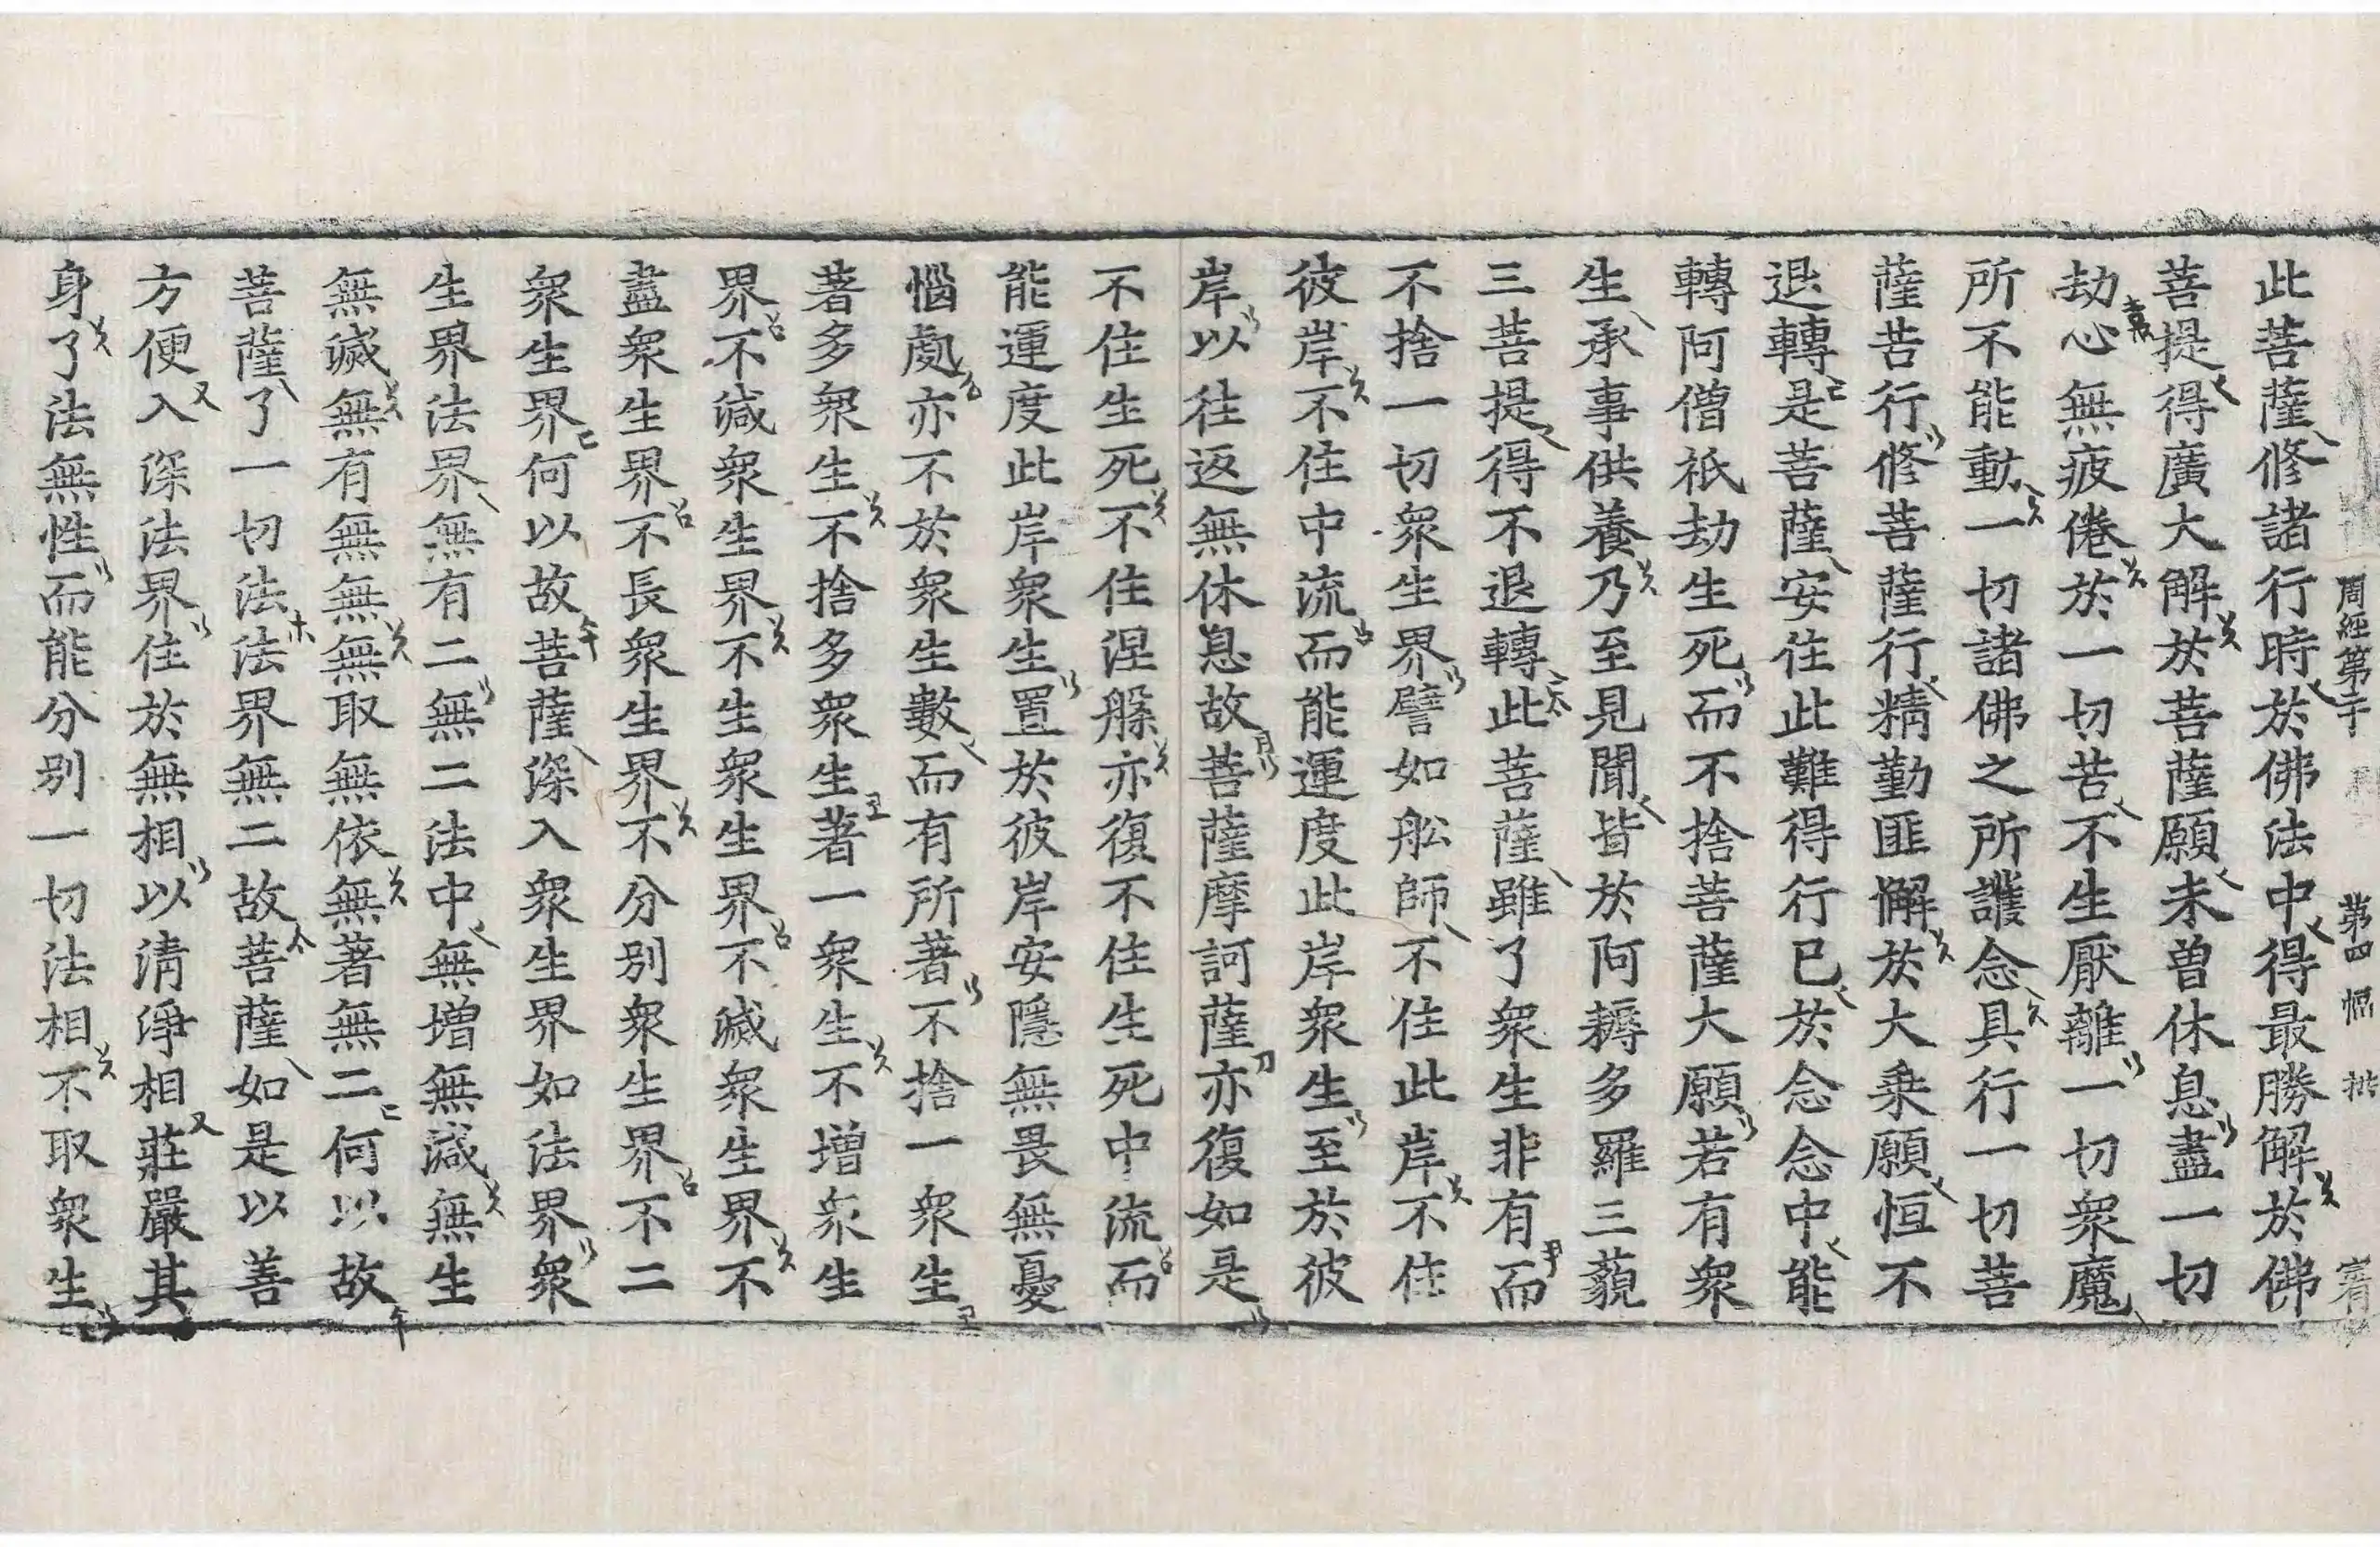 周經第二十 第四幅
此菩薩修諸行時於佛法中得最勝解於佛
菩提得廣大解於菩薩願未曽休息盡一切
劫心無疲倦於一切苦不生厭離一切衆魔
所不能動一切諸佛之所護念具行一切菩
薩苦行修菩薩行精勤匪懈於大乗願恒不
退轉是菩薩安住此難得行已於念念中能
轉阿僧祇劫生死而不捨菩薩大願若有衆
生承事供養乃至見聞皆於阿耨多羅三藐
三菩提得不退轉此菩薩雖了衆生非有而
不捨一切衆生界譬如舩師不住此岸不住
彼岸不住中流而能運度此岸衆生至於彼
岸以往返無休息故菩薩摩訶薩亦復如是
不住生死不住涅槃亦復不住生死中流而
能運度此岸衆生置於彼岸安隱無畏無憂
惱處亦不於衆生數而有所著不捨一衆生
著多衆生不捨多衆生著一衆生不增衆生
界不減衆生界不生衆生界不滅衆生界不
盡衆生界不長衆生界不分別衆生界不二
衆生界何以故菩薩深入衆生界如法界衆
生界法界無有二無二法中無增無減無生
無滅無有無無無取無依無著無二何以故
菩薩了一切法法界無二故菩薩如是以善
方便入深法界住於無相以清淨相莊嚴其
身了法無性而能分別一切法相不取衆生